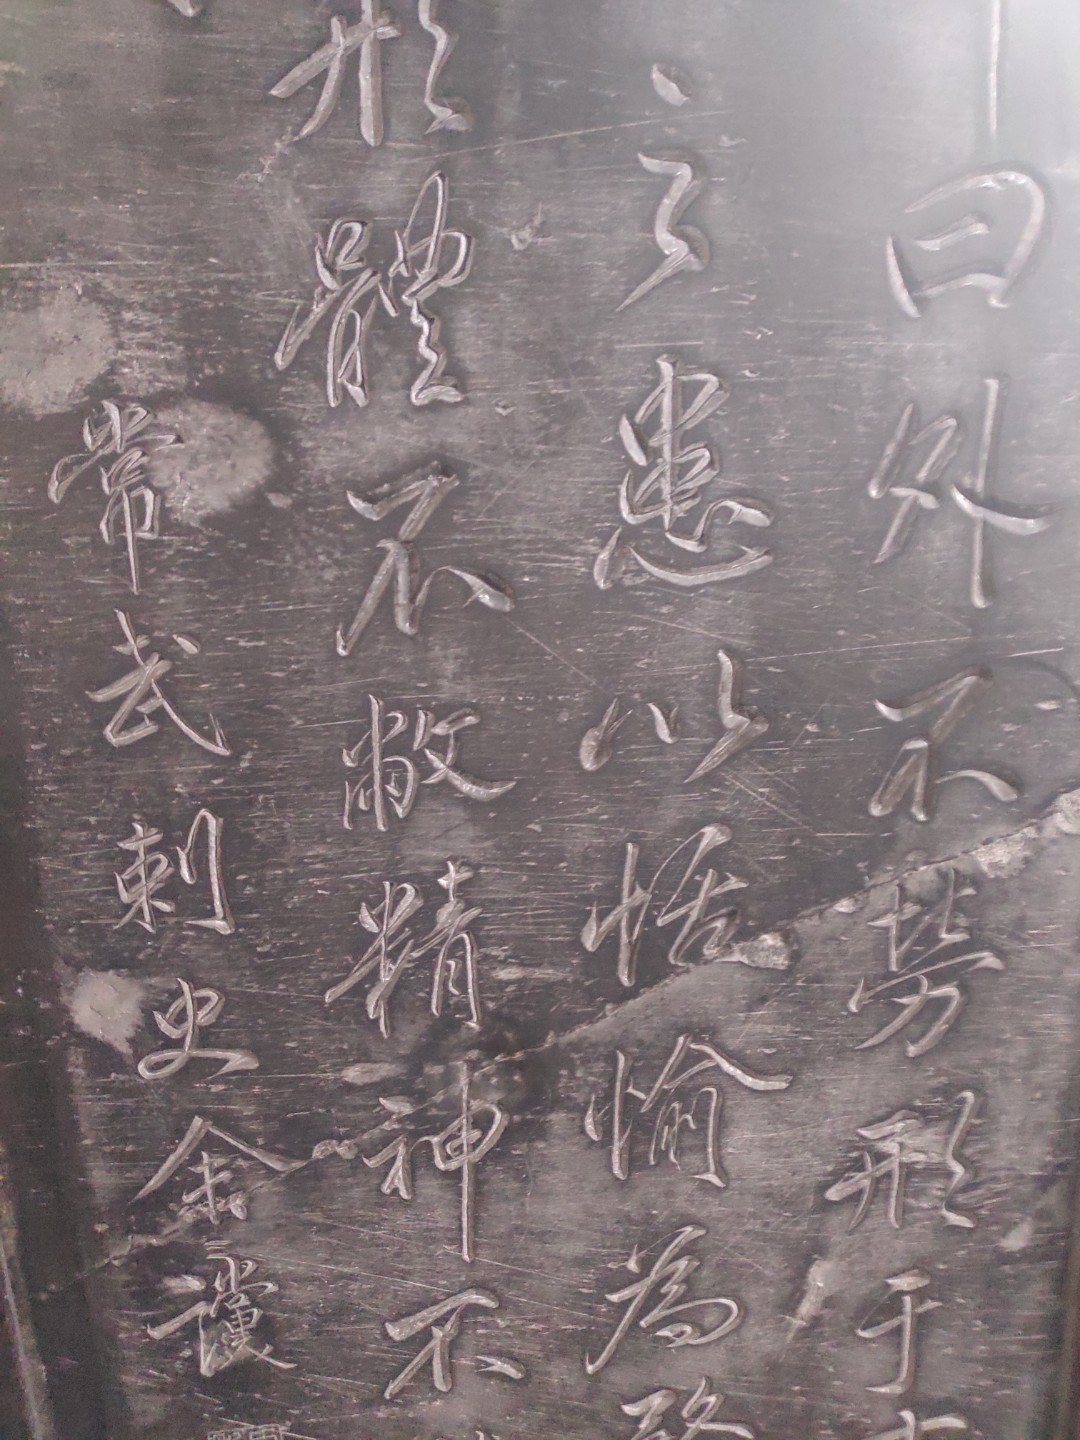 曰外不勞形于
之患以恬愉為
形體不敝精神不
常武刺史余